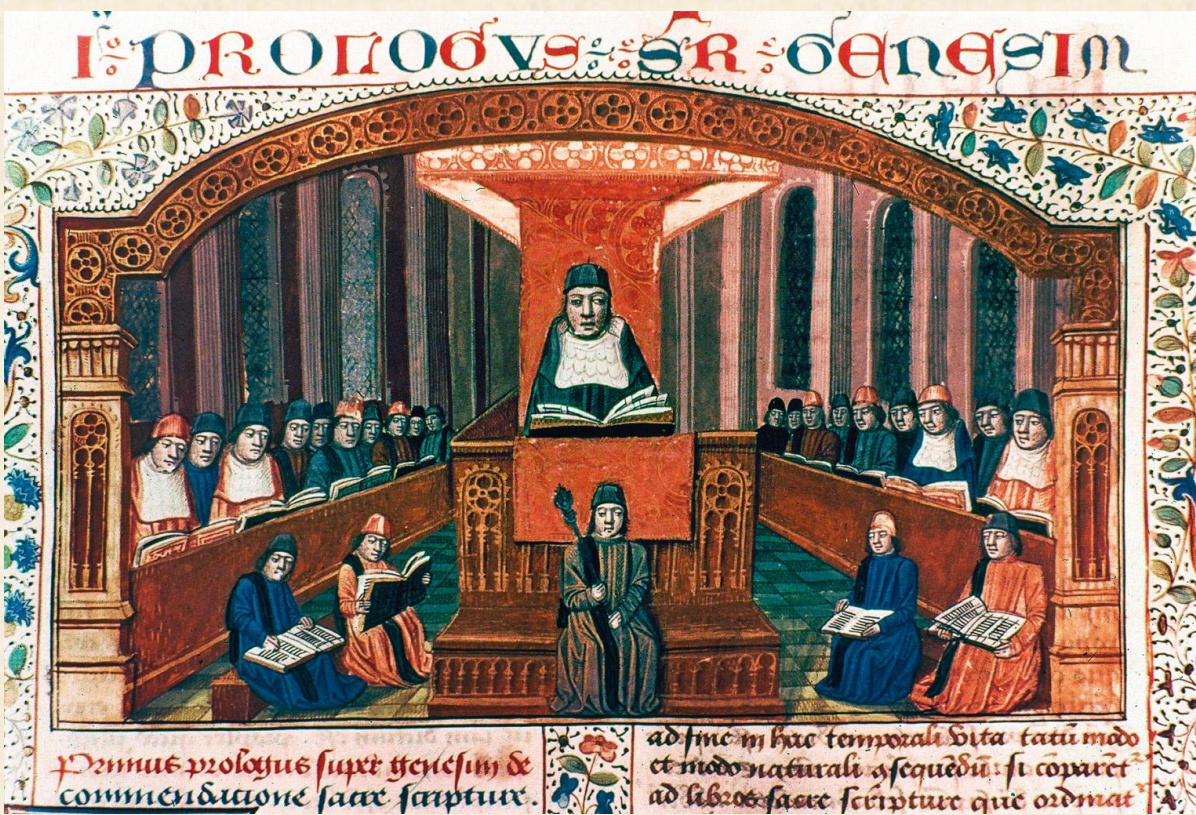 I PROLOGVS SR GENESIM
Primus prologus super genesim de
commendacione sacre scripture.
ad fine in hac temporali vita tātū modo
et modo naturali ꝯsequēdū. si cōparet᷑
ad libros sacre scripture que ordinat᷑